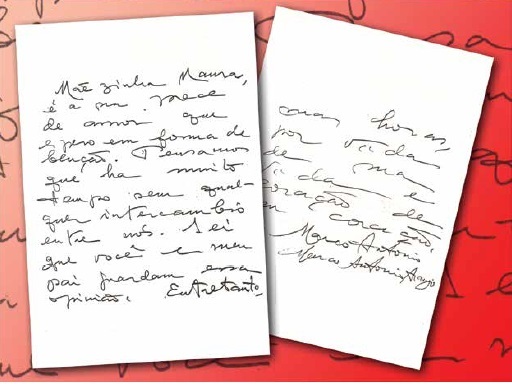 Mãezinha Maura,
é a sua prece
de amor que
espero em forma de
benção. Pensamos
que há muito
tempo sem qual-
quer intercambio
entre nós. Sei
que você e meu
pai guardam essa
opinião. Entretanto,
horas,
por vidas
de
vidas e
coração de
coração.
Marco Antonio
Marco Antonio Araujo